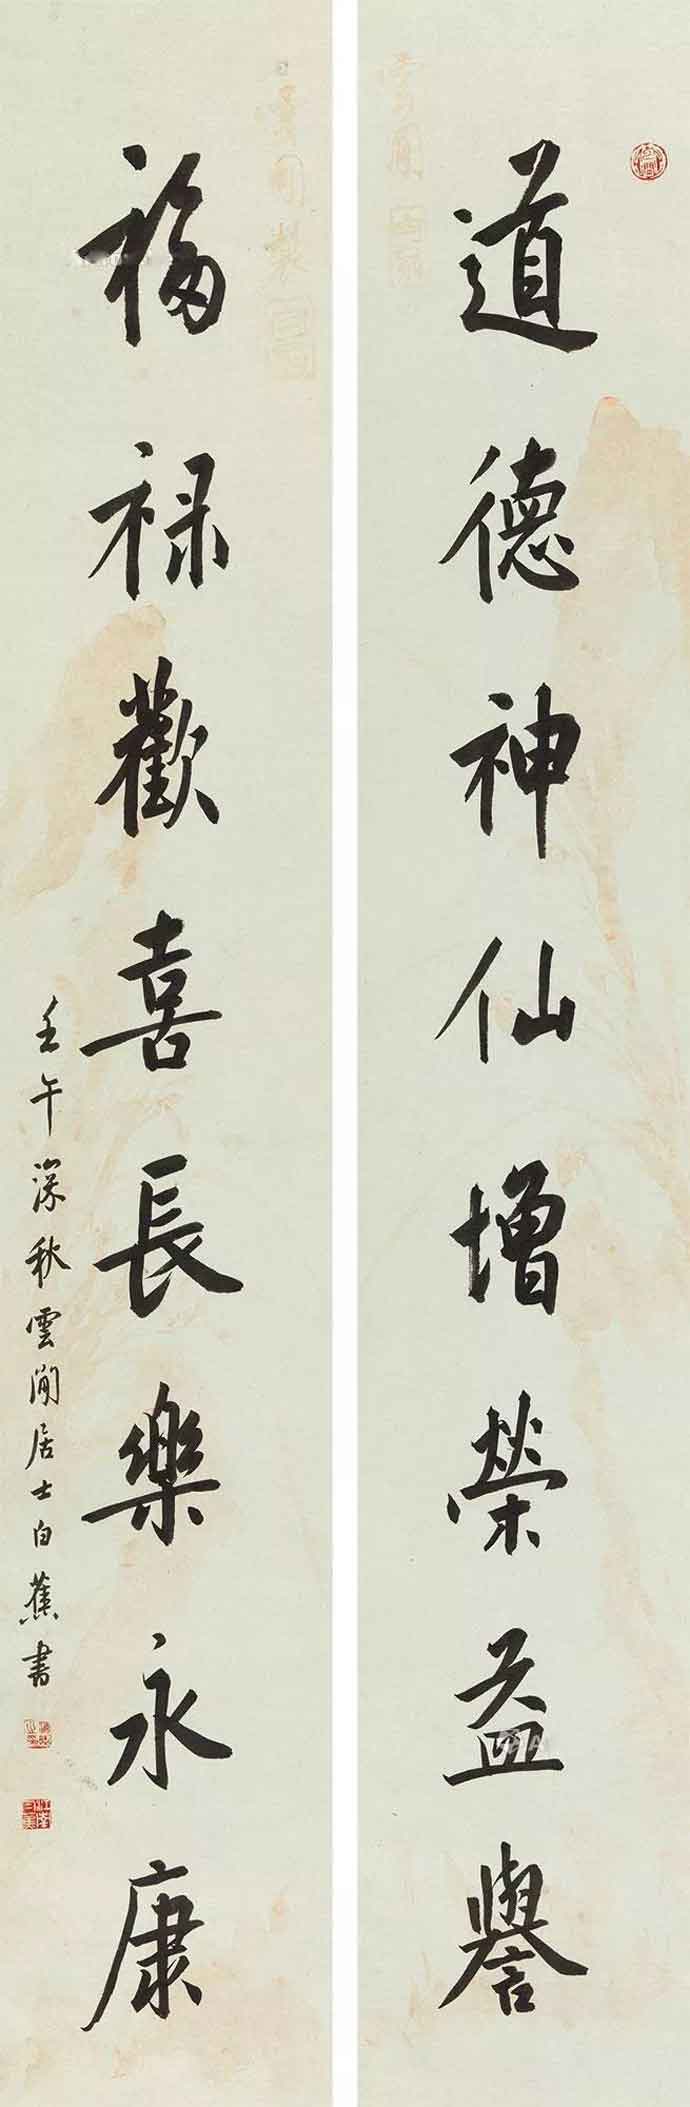 道德神仙增榮益譽
福祿歡喜長樂永康
壬午深秋雲間居士白蕉書